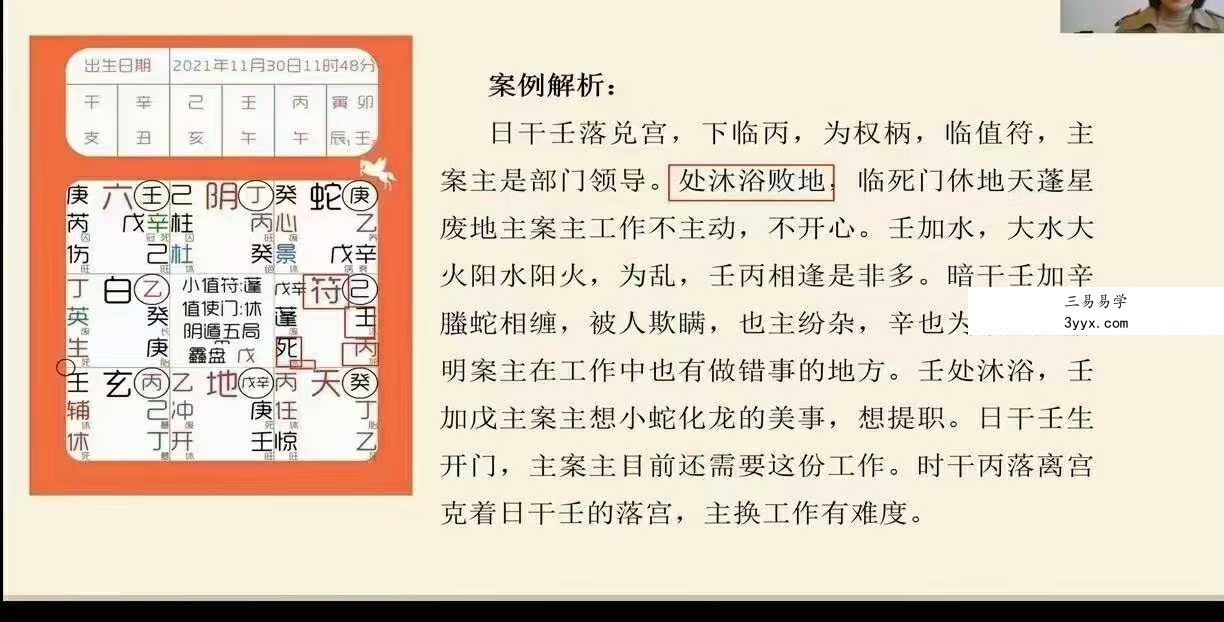 出生日期 2021年11月30日11时48分
干 辛 己 壬 丙 寅 卯
支 丑 亥 午 午 辰，壬
庚 六 壬 己 阴 丁 癸 蛇 庚
芮 戊 辛 柱 丙 心 乙
伤 己 杜 癸 景 戊 辛
丁 白 乙 小值符:蓬 戊辛 符 己
英 癸 值使门:休 蓬 壬
阴遁五局
生 庚 鑫盘 戊 死 丙
壬 玄 丙 乙 地 戊辛 丙 天 癸
辅 己 冲 庚 任 丁
休 丁 开 壬 惊 乙
案例解析：
日干壬落兑宫，下临丙，为权柄，临值符，主
案主是部门领导。处沐浴败地，临死门休地天蓬星
废地主案主工作不主动，不开心。壬加水，大水大
火阳水阳火，为乱，壬丙相逢是非多。暗干壬加辛
螣蛇相缠，被人欺瞒，也主纷杂，辛也为
明案主在工作中也有做错事的地方。壬处沐浴，壬
加戊主案主想小蛇化龙的美事，想提职。日干壬生
开门，主案主目前还需要这份工作。时干丙落离宫
克着日干壬的落宫，主换工作有难度。
三易易学
3yyx.com